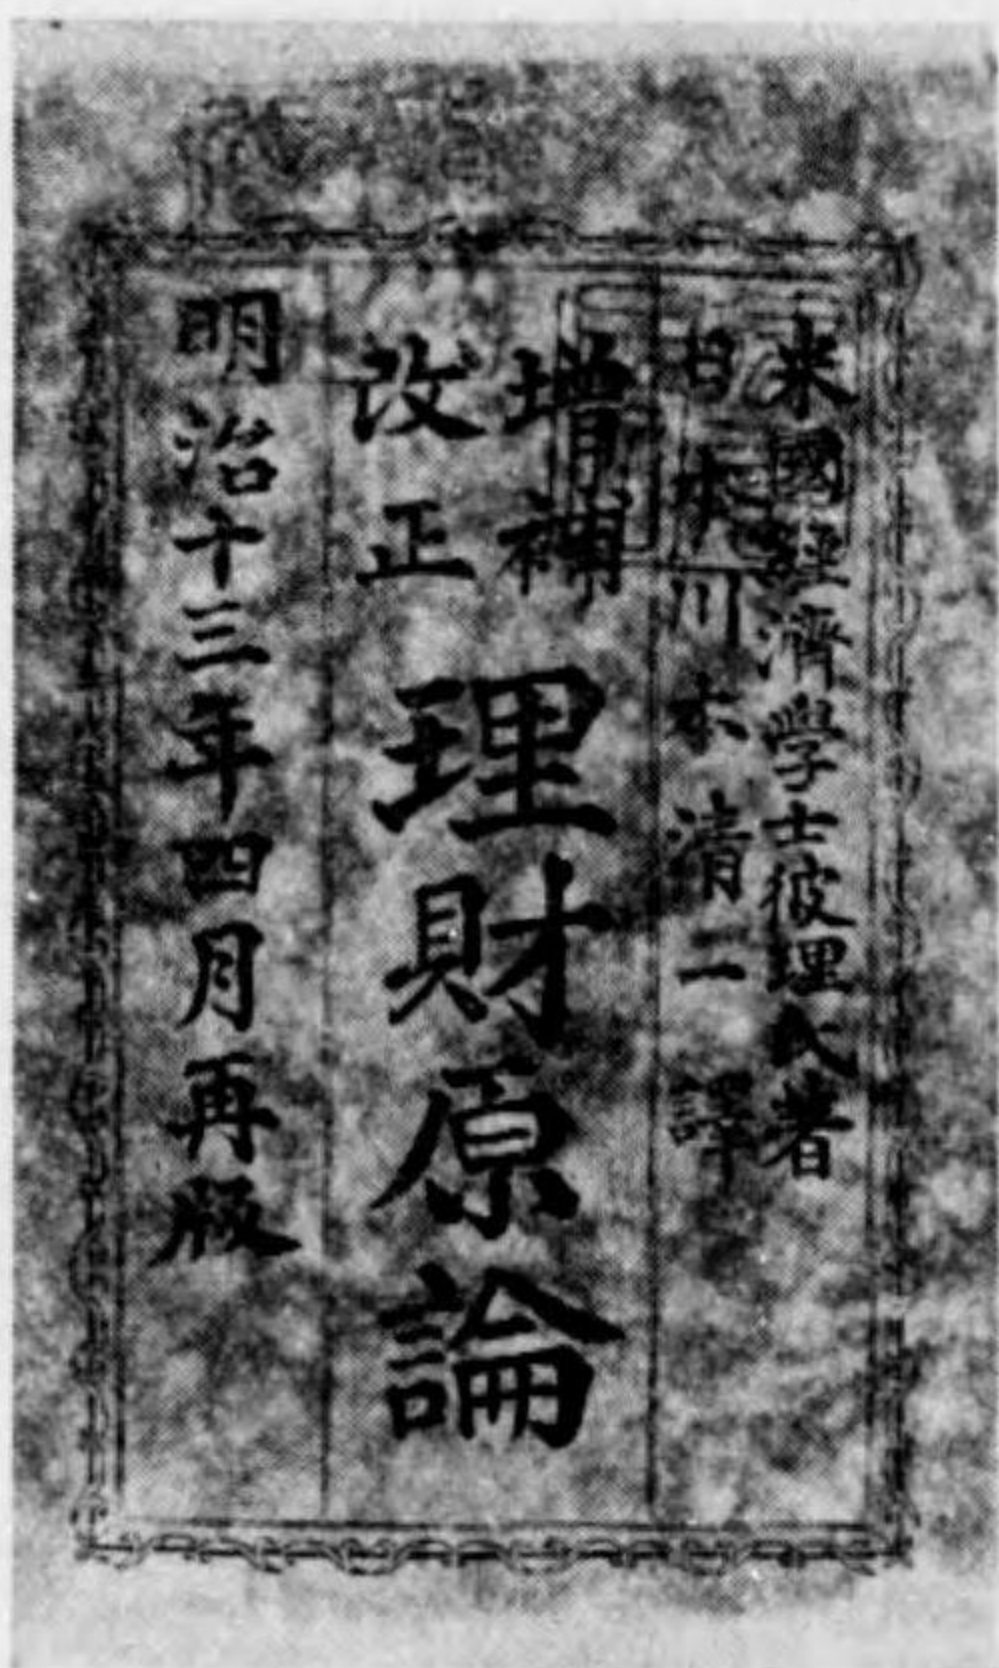 米國經濟學士彼理氏著
日本川本清二譯
增補
改正
理財原論
明治十三年四月再版